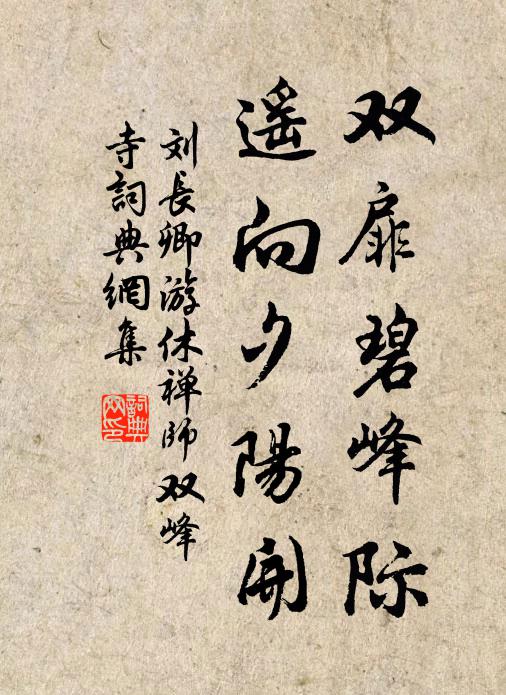 双扉碧峰际
遥向夕陽開
刘長卿游休禅師双峰
寺詞典網集
詞典
网印